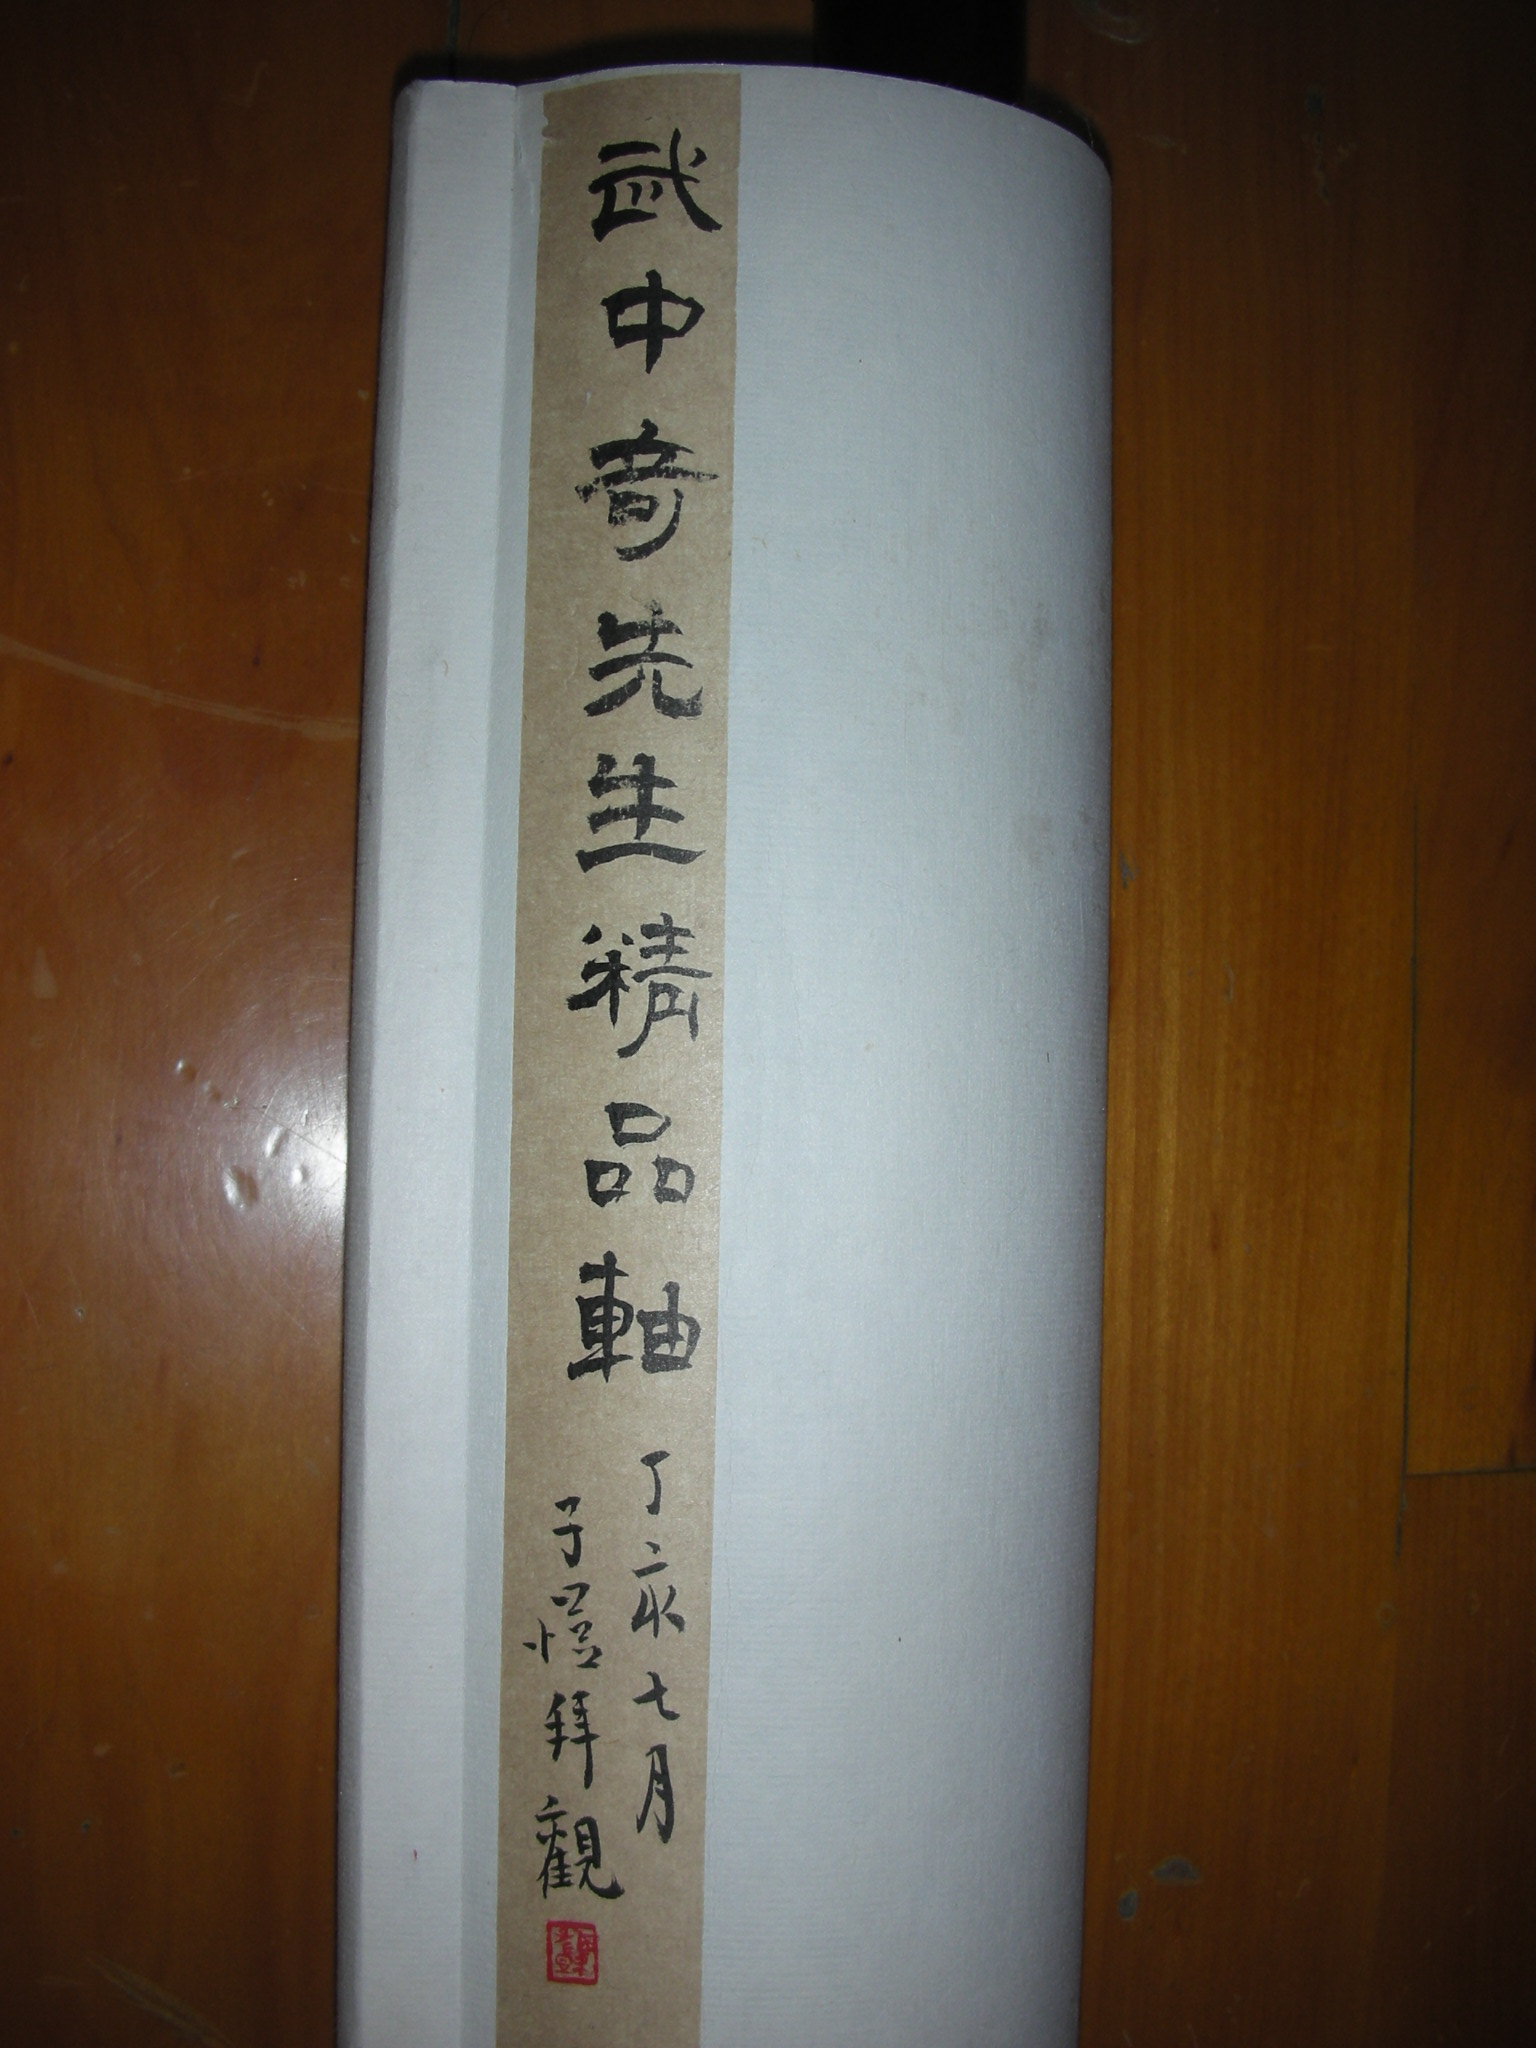 武中奇先生精品軸
丁亥七月
子愷拜觀